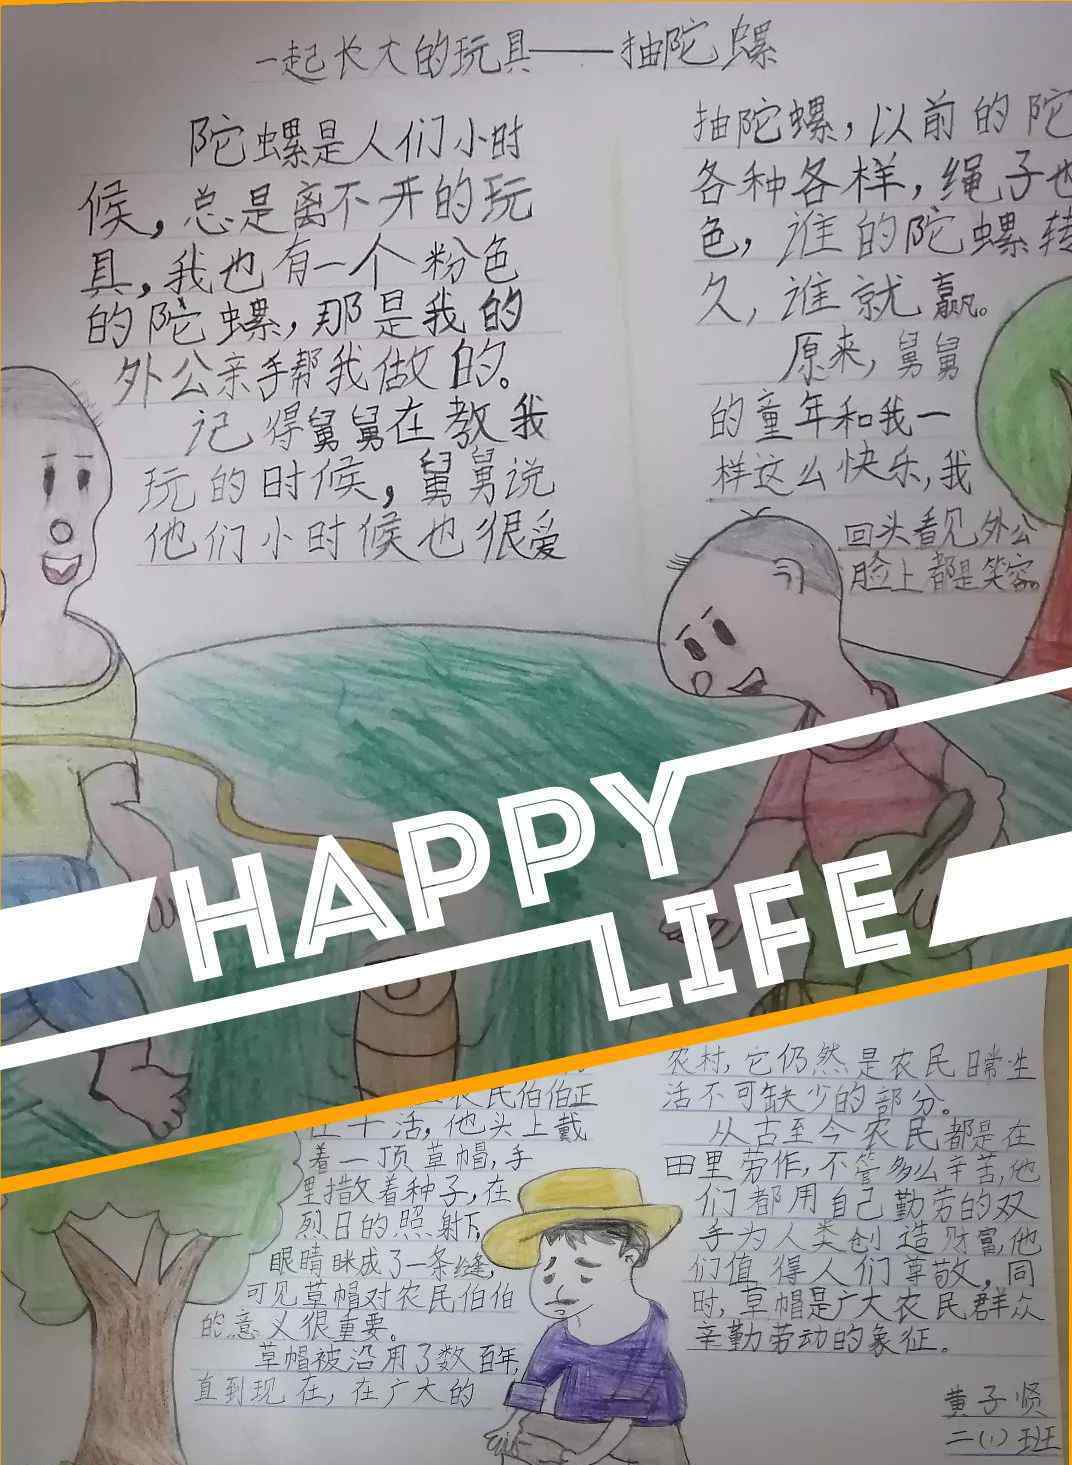 一起长大的玩具——抽陀螺
陀螺是人们小时
候，总是离不开的玩
具，我也有一个粉色
的陀螺，那是我的
外公亲手帮我做的。
记得舅舅在教我
玩的时候，舅舅说
他们小时候也很爱
抽陀螺，以前的陀
各种各样，绳子也
色，谁的陀螺转
久，谁就赢。
原来，舅舅
的童年和我一
样这么快乐，我
回头看见外公
脸上都是笑容。
HAPPY
LIFE
农民伯伯正
在干活，他头上戴
着一顶草帽，手
里撒着种子，在
烈日的照射下，
眼睛眯成了一条缝，
可见草帽对农民伯伯
的意义很重要。
草帽被沿用了数百年，
直到现在，在广大的
农村，它仍然是农民日常生
活不可缺少的部分。
从古至今农民都是在
田里劳作，不管多么辛苦，他
们都用自己勤劳的双
手为人类创造财富，他
们值得人们尊敬，同
时，草帽是广大农民群众
辛勤劳动的象征。
黄子贤
二(1)班